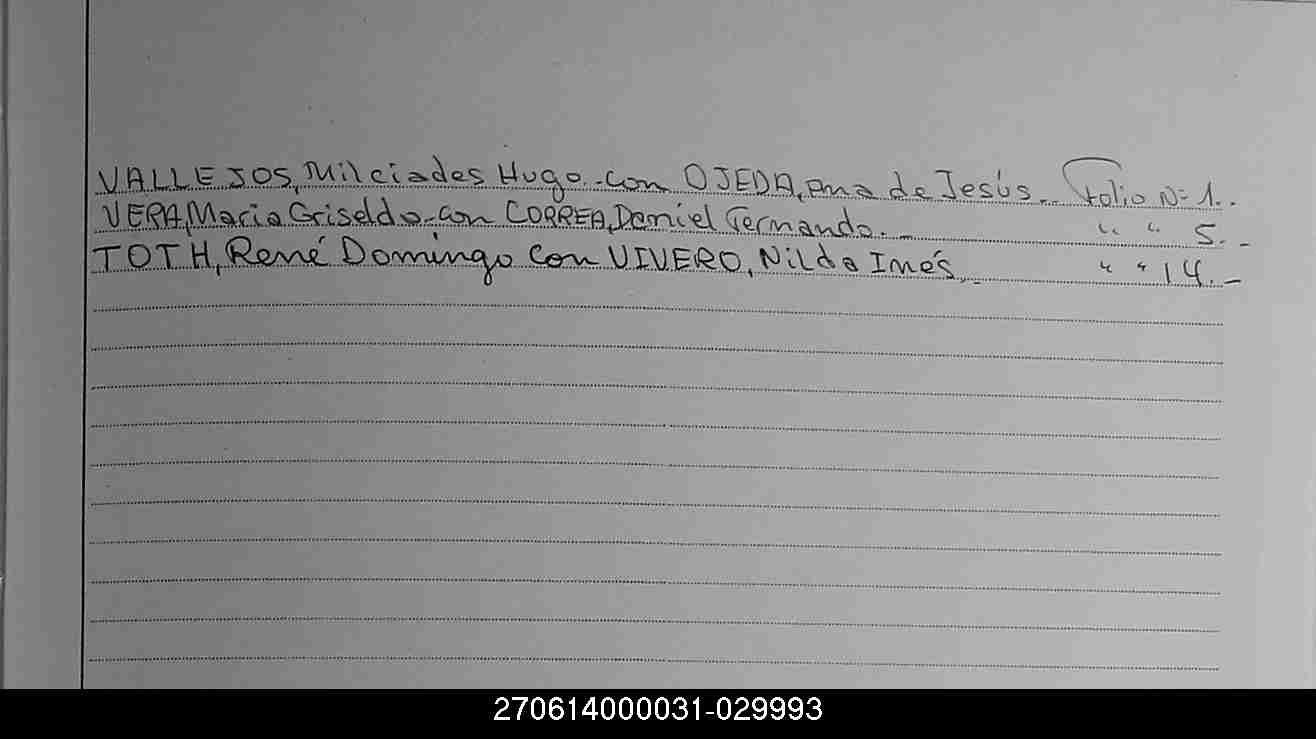 VALLEJOS, Milciades Hugo.-con OJEDA, Ana de Jesús.- Folio Nº 1..
VERA, Maria Griselda-con CORREA, Daniel Fernando.- “ “ 5.-
TOTH, René Domingo con VIVERO, Nilda Inés.- “ “ 14.-
270614000031-029993